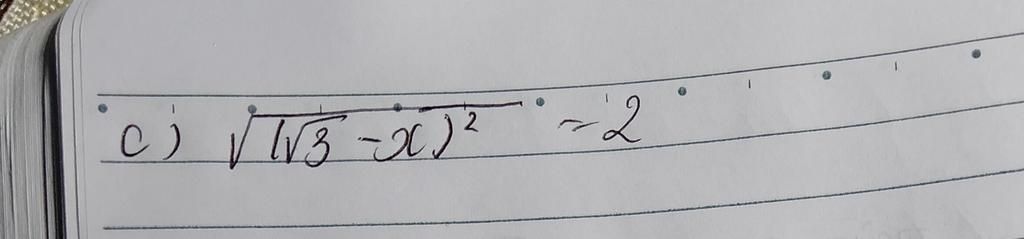 c) √(√3 - x)² = 2